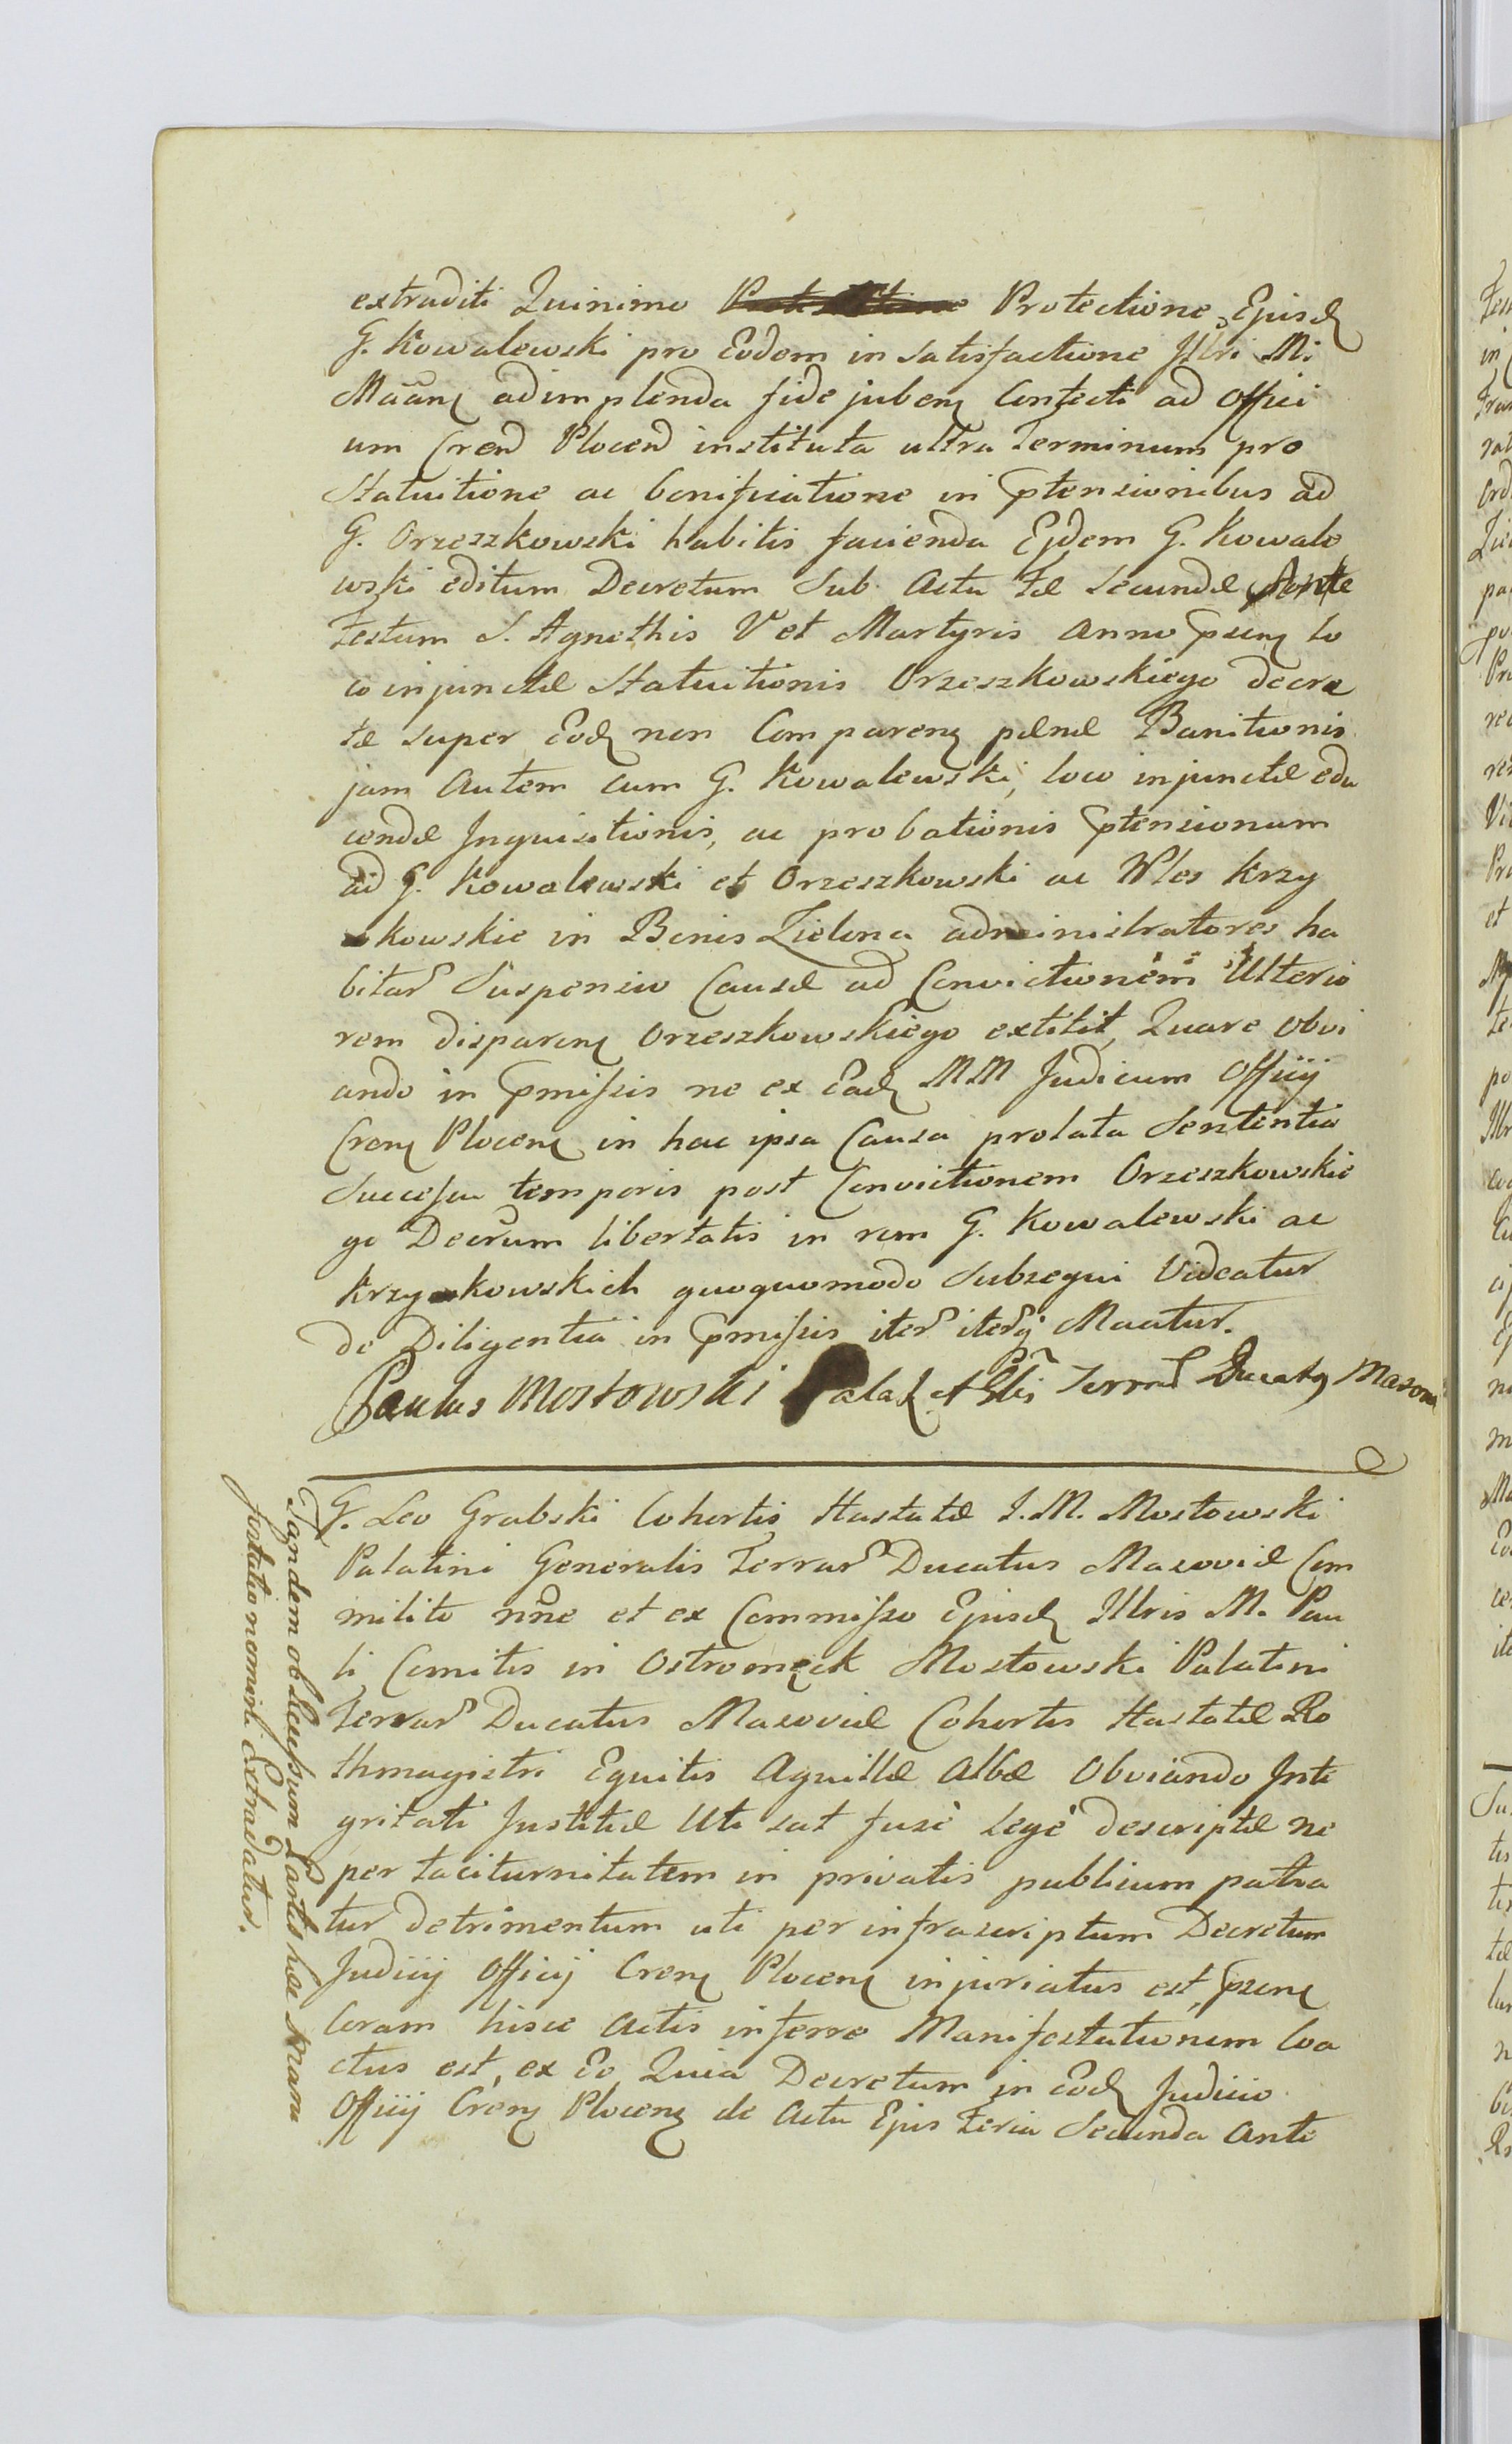 extraditi Quinimo Protectione Ejusd
G. Kowalewski pro Eodem in satisfactione Illri M:
Māanę adimplenda fide jubenę Contecti ad Offici
um Cren Plocen instituta ultra Terminum pro
Statuitione ac bonificatione in ptensionibus ad
G. Orzeszkowski habitis facienda Ejdem G. Kowale
wski editum Decretum Sub Actu fæ secundæ Ante
Festum S. Agnethis V et Martyris Anno psenę lo
co injunctæ Statuitionis Orzeszkowskiego decre
tæ super Eodę non Comparenę pænæ Banitionis
jam Autem cum G. Kowalewski, loco injunctæ edu
cendæ Inquisitionis, ac probationis ptensionum
ad G. Kowalewski et Orzeszkowski ac Wles Krzy
kowskie in Bonis Zielona administratores ha
bitar Suspensio Causæ ad Convictionem Ulterio
rem disparenę Orzeszkowskiego extitit, Quare obvi
ando in pmissis ne ex Eadę MM Judicum Officij
Crenę Plocenę in hac ipsa Causa prolata Sententia
Successu temporis post Convictionem Orzeszkowskie
go Decrum libertatis in rem G. Kowalewski ac
Krzykowskich quoquomodo Subsequi Videatur
de Diligentia in pmissis iter iterq Maatur.
Paulus Mostowski Palat et Glis Terrar Ducatq Masovi
G. Leo Grabski Cohortis Hastatæ I. M. Mostowski
Palatini Generalis Terrar Ducatus Masoviæ Com
milito nne et ex Commisso Ejusdę Illris M. Pau
li Comitis in Ostromęck Mostowski Palatini
Terrar Ducatus Masoviæ Cohortis Hastatæ Ro
thmagistri Equitis Aquillæ Albæ Obviando Inte
gritati Justitiæ Uti sat fusè legè descriptæ ne
per taciturnitatem in privatis publicum patra
tur detrimentum uti per infrascriptum Decretum
Judicij Officij Crenę Plocenę injuriatus est, psenę
Coram hisce Actis inferre Manifestationem Coa
ctus est, ex Eo Quia Decretum in Eodę Judicio
Officij Crenę Plocenę de Actu Ejus Feria Secunda Ante
Tandem ob Lessum Partis hæc Mani
festatio nemini Extradatur.